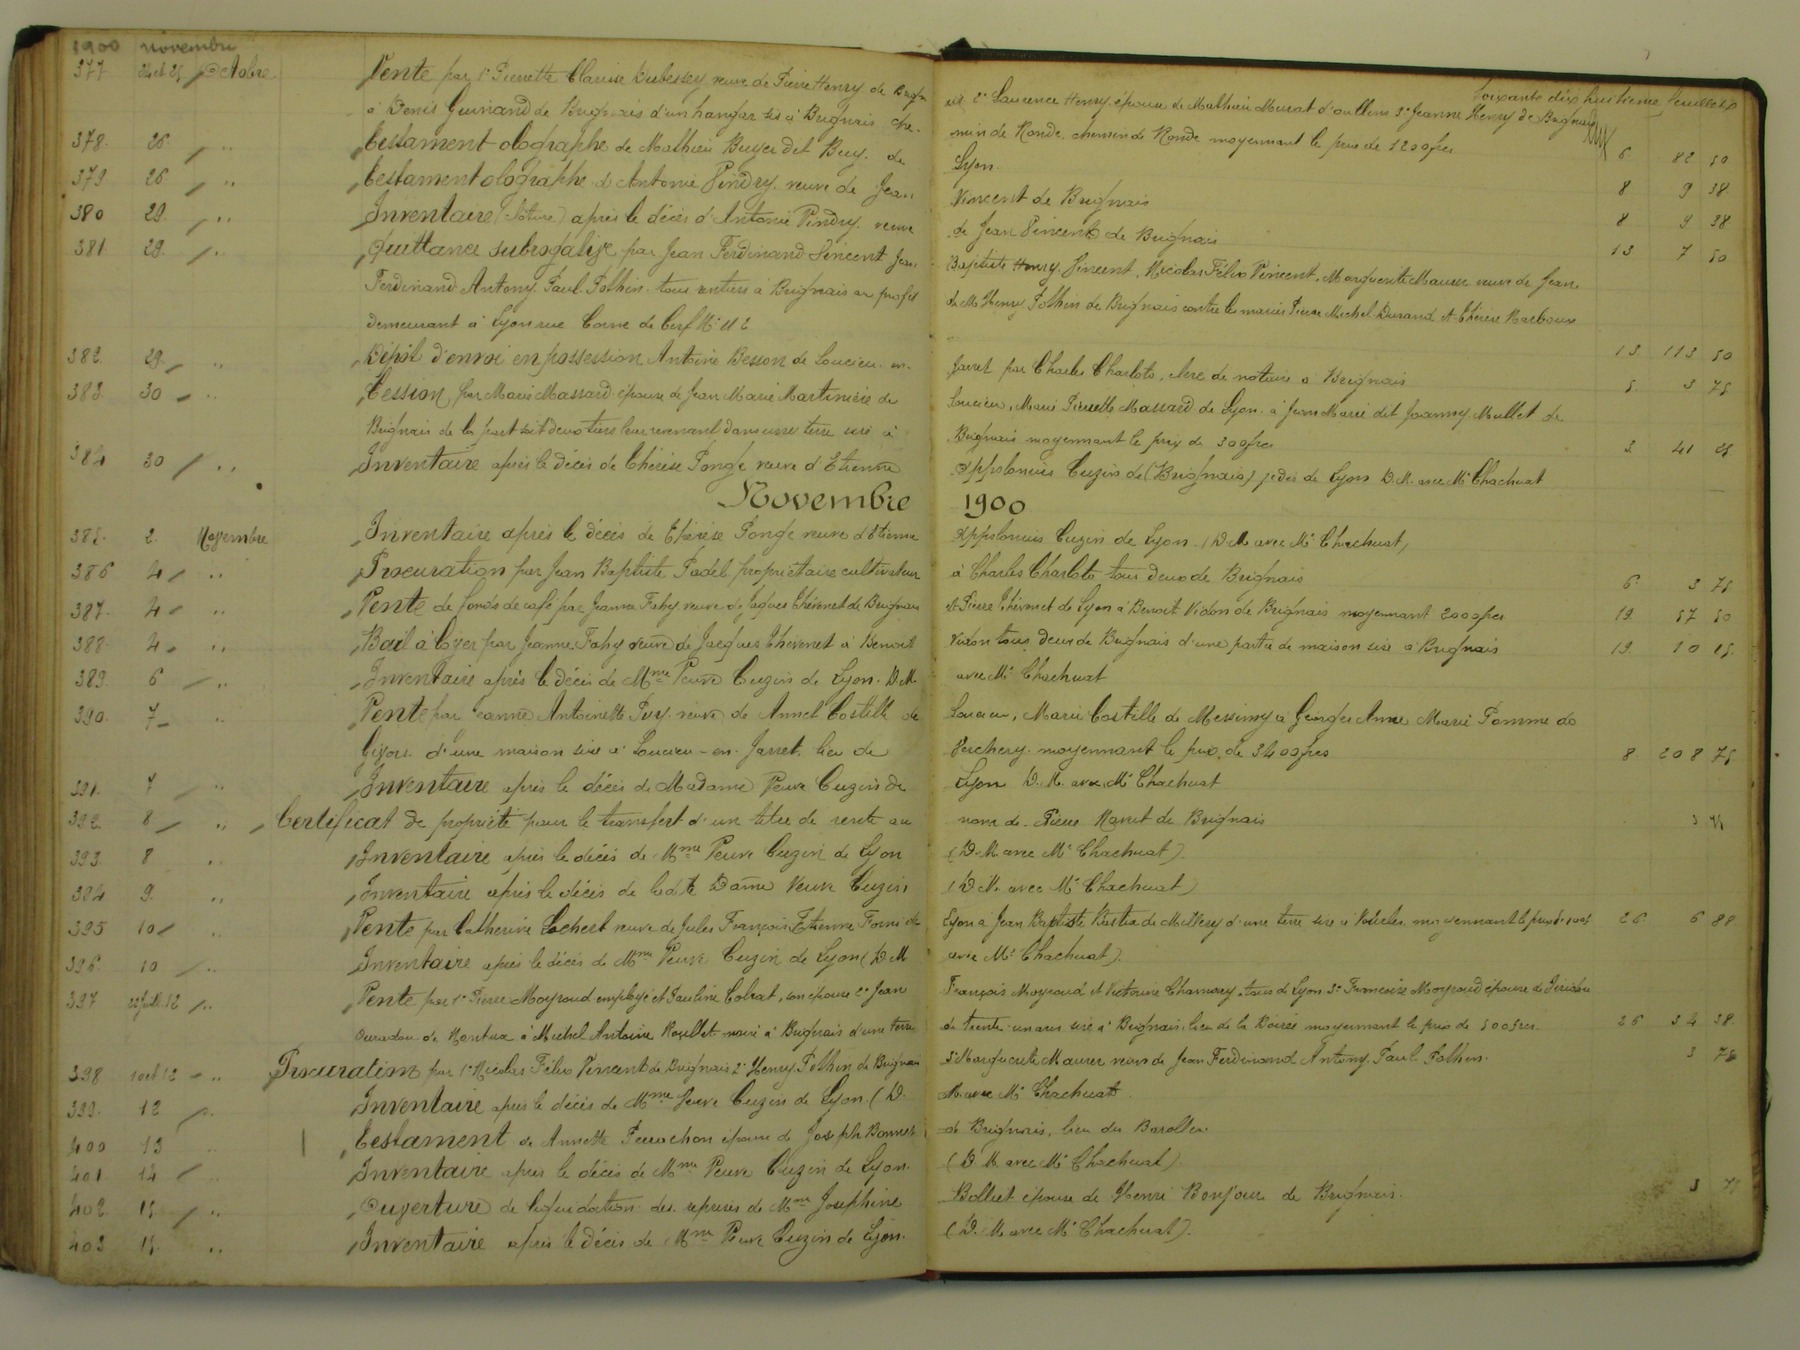 1900 novembre
Soixante dix huitième feuillet
377 24 et 25 Octobre Vente par 1° Pierrette Clarisse Dubessey veuve de Pierre Henry de Brignais et 2° Laurence Henry épouse de Mathieu Murat d'oullins 3° Jeanne Henry de Brignais
à Denis Guinand de Brignais d'un hangar sis à Brignais che- min de Ronde chemin de Ronde moyennant le prix de 1200 frcs 6 82 50
378 26 " Testament olographe de Mathieu Buyer dit Buy de Lyon. 8 9 38
379 26 " Testament olographe d'Antonie Pindry veuve de Jean Vincent de Brignais 8 9 38
380 29 " Inventaire (Clôture) après le décès d'Antonie Pindry veuve de Jean Vincent de Brignais 13 7 50
381 29 " Quittance subrogative par Jean Ferdinand Vincent Jean Baptiste Henry Vincent, Nicolas Félix Vincent, Marguerite Maurer veuve de Jean
Ferdinand Antony Paul Pothin tous rentiers à Brignais au profit de M. Henry Pothin de Brignais contre les mariés Pierre Michel Durand et Thérèse Narboux
demeurant à Lyon rue Corne de Cerf N° 112 13 113 50
382 29 " Dépôt d'envoi en possession Antoine Besson de Soucieu-en- Jarret par Charles Charlots, clerc de notaire à Brignais 5 3 75
383 30 " Cession par Marie Massard épouse de Jean Marie Martinière de Soucieu, Marie Pierrette Massard de Lyon à Jean Marie dit Joanny Mullet de
Brignais de la part soit deux tiers leur revenant dans une terre sise à Brignais moyennant le prix de 300 frcs 3 41 25
384 30 " Inventaire après le décès de Thérèse Ponge veuve d'Etienne Appolonius Cuzin de (Brignais) je dis de Lyon D.M. avec Me Chachuat
Novembre 1900
385 2 Novembre Inventaire après le décès de Thérèse Ponge veuve d'Etienne Appolonius Cuzin de Lyon. (D.M. avec Me Chachuat)
386 4 " Procuration par Jean Baptiste Padel propriétaire cultivateur à Charles Charlots tous deux de Brignais 6 3 75
387 4 " Vente de fonds de café par Jeanne Fahy veuve de Jacques Thévenet de Brignais et Pierre Thévenet de Lyon à Benoit Vidon de Brignais moyennant 2000 frcs 19 57 50
388 4 " Bail à loyer par Jeanne Fahy veuve de Jacques Thevenet à Benoit Vidon tous deux de Brignais d'une partie de maison sise à Brignais 19 10 25
389 6 " Inventaire après le décès de Mme Veuve Cuzin de Lyon. D.M. avec Me Chachuat
390 7 " Vente par Jeanne Antoinette Puy veuve de Annet Costille de Soucieu, Marie Costille de Messimy à Georges Anne Marie Pomme de
Givors d'une maison sise à Soucieu-en-Jarret, lieu de Verchery moyennant le prix de 3400 frcs 8 208 75
391 7 " Inventaire après le décès de Madame Veuve Cuzin de Lyon D.M. avec Me Chachuat
392 8 " Certificat de propriété pour le transfert d'un titre de rente au nom de Pierre Navet de Brignais 3 75
393 8 " Inventaire après le décès de Mme Veuve Cuzin de Lyon (D.M. avec Me Chachuat).
384 9 " Inventaire après le décès de ladite Dame Veuve Cuzin (D.M. avec Me Chachuat)
395 10 " Vente par Catherine Lochert veuve de Jules François Etienne Forni de Lyon à Jean Baptiste de Millery d'une terre sise à Vourles moyennant le prix de 100f 26 6 88
396 10 " Inventaire après le décès de Mme Veuve Cuzin de Lyon (D.M. avec Me Chachuat).
397 12 " Vente par 1° Pierre Moyroud employé et Pauline Colrat, son épouse 2° Jean François Moyroud et Victorine Chamoray, tous de Lyon 3° Françoise Moyroud épouse de
de Nantua à Michel Antoine Noullet notaire à Brignais d'une terre de trente un ares sise à Brignais, lieu de la Boirée moyennant le prix de 500 frcs. 26 34 38
398 1 oct 12 " Procuration par 1° Nicolas Félix Vincent de Brignais 2° Henry Pothin de Brignais 3° Marguerite Maurer veuve de Jean Ferdinand Antony Paul Pothin. 3 75
399 12 " Inventaire après le décès de Mme Veuve Cuzin de Lyon. (D. M. avec Me Chachuat.
400 13 " Testament de Annette Perrachon épouse de Joseph Bonnet de Brignais, lieu du Baroller
401 14 " Inventaire après le décès de Mme Veuve Cuzin de Lyon. (D.M. avec Me Chachuat).
402 15 " Ouverture de liquidation des reprises de Mme Joséphine Bolliet épouse de Henri Bonjour de Brignais. 3 75
403 15 " Inventaire après le décès de Mme Veuve Cuzin de Lyon. (D.M. avec Me Chachuat).